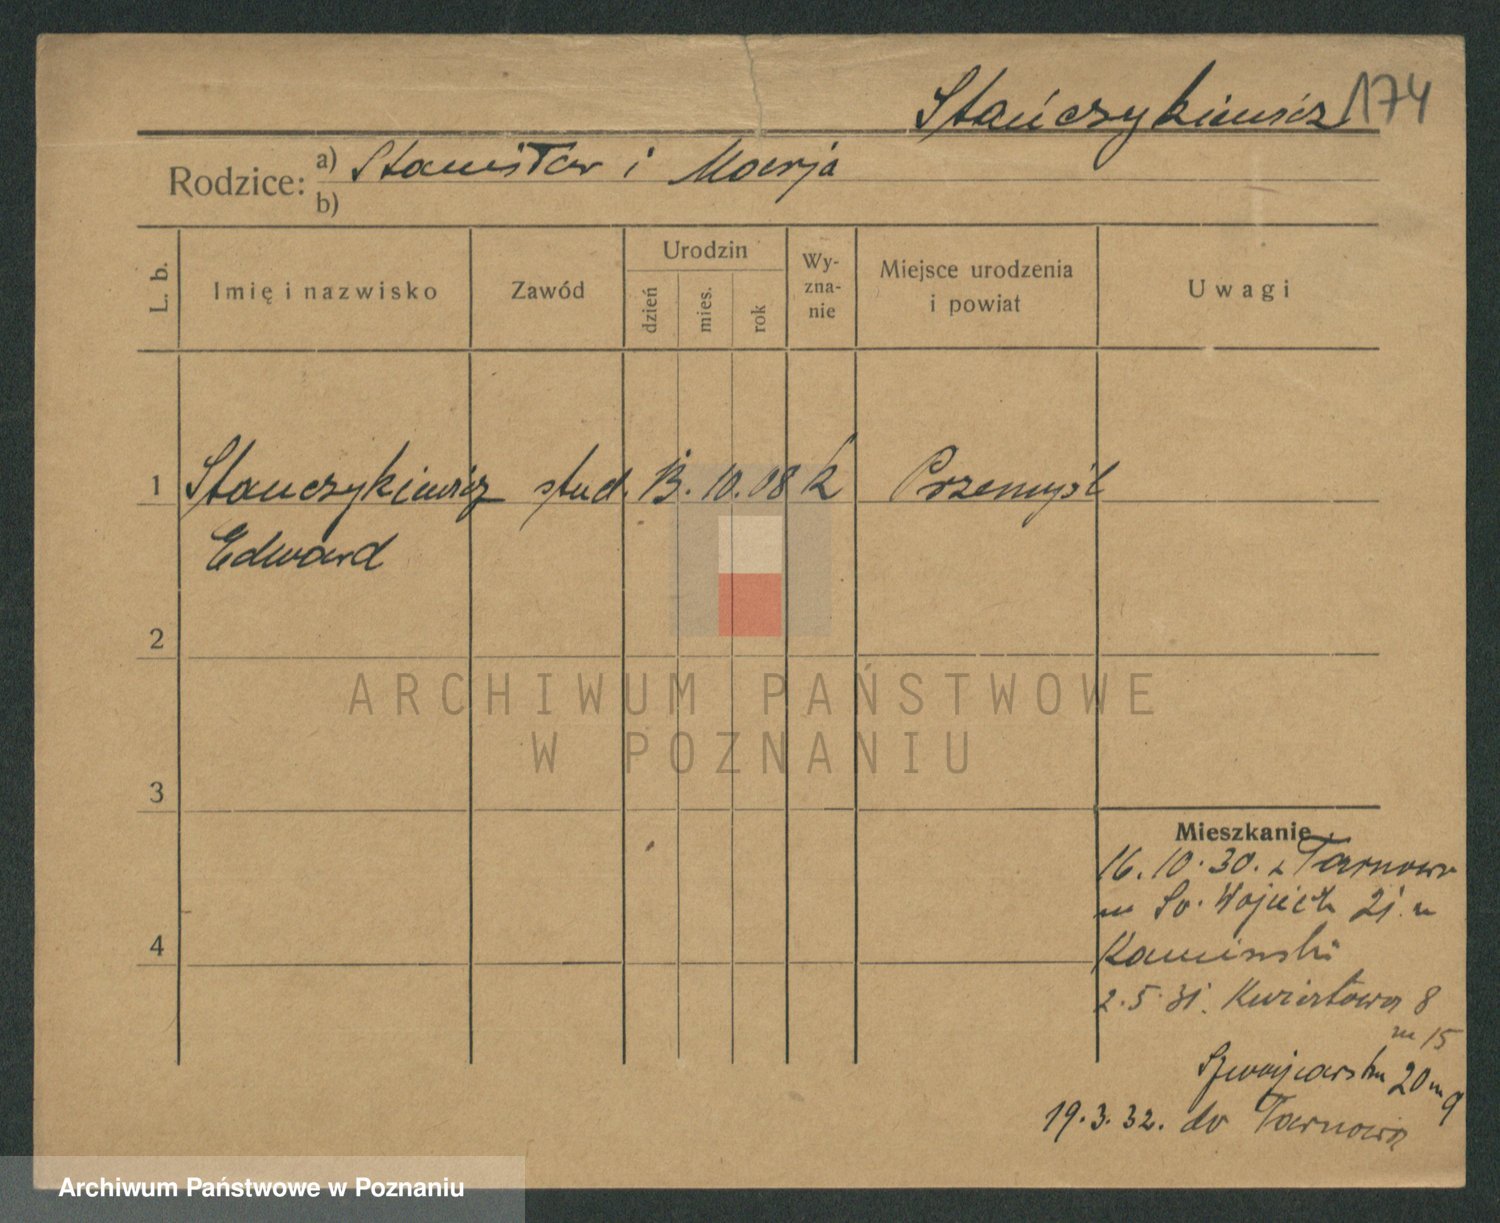 Stańczykiewicz 174
Rodzice: a) Stanisław i Marja
b)
L. b.
Imię i nazwisko
Zawód
Urodzin
dzień
mies.
rok
Wy-
zna-
nie
Miejsce urodzenia
i powiat
Uwagi
1 Stańczykiewicz stud. 13. 10. 08 k Przemyśl
Edward
2
3
4
Mieszkanie
16. 10. 30. z Tarnowa
Św. Wojciech
Kamiński
2. 5. 31. Kwiatowa 8
m 15
Szwajcarska 20 m 9
19. 3. 32. do Tarnowa
ARCHIWUM PAŃSTWOWE
W POZNANIU
Archiwum Państwowe w Poznaniu